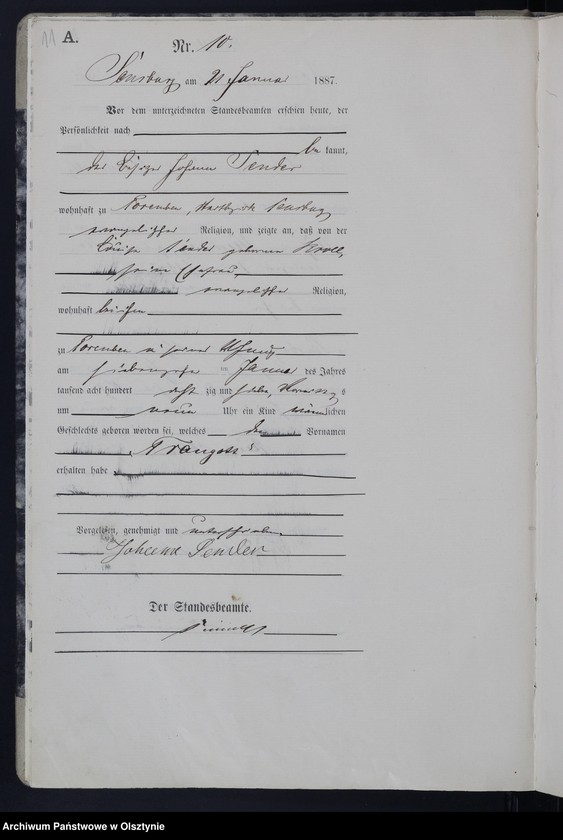 11
A.
Nr. 10.
Sensburg am 21 Januar 1887.
Vor dem unterzeichneten Standesbeamten erschien heute, der
Persönlichkeit nach
be kannt,
der Besitzer Johann Sender
wohnhaft zu Sensburg
evangelischer Religion, und zeigte an, daß von der
Louise Sender geborenen
seine Ehefrau,
evangelischer Religion,
wohnhaft bei ihm
zu in seiner Wohnung
am siebenzehn ten Januar des Jahres
tausend acht hundert acht zig und sieben, Vormittags
um neun Uhr ein Kind männlichen
Geschlechts geboren worden sei, welches den Vornamen
"Traugott"
erhalten habe
Vorgelesen, genehmigt und unterschrieben
Johann Sender
Der Standesbeamte.
Archiwum Państwowe w Olsztynie